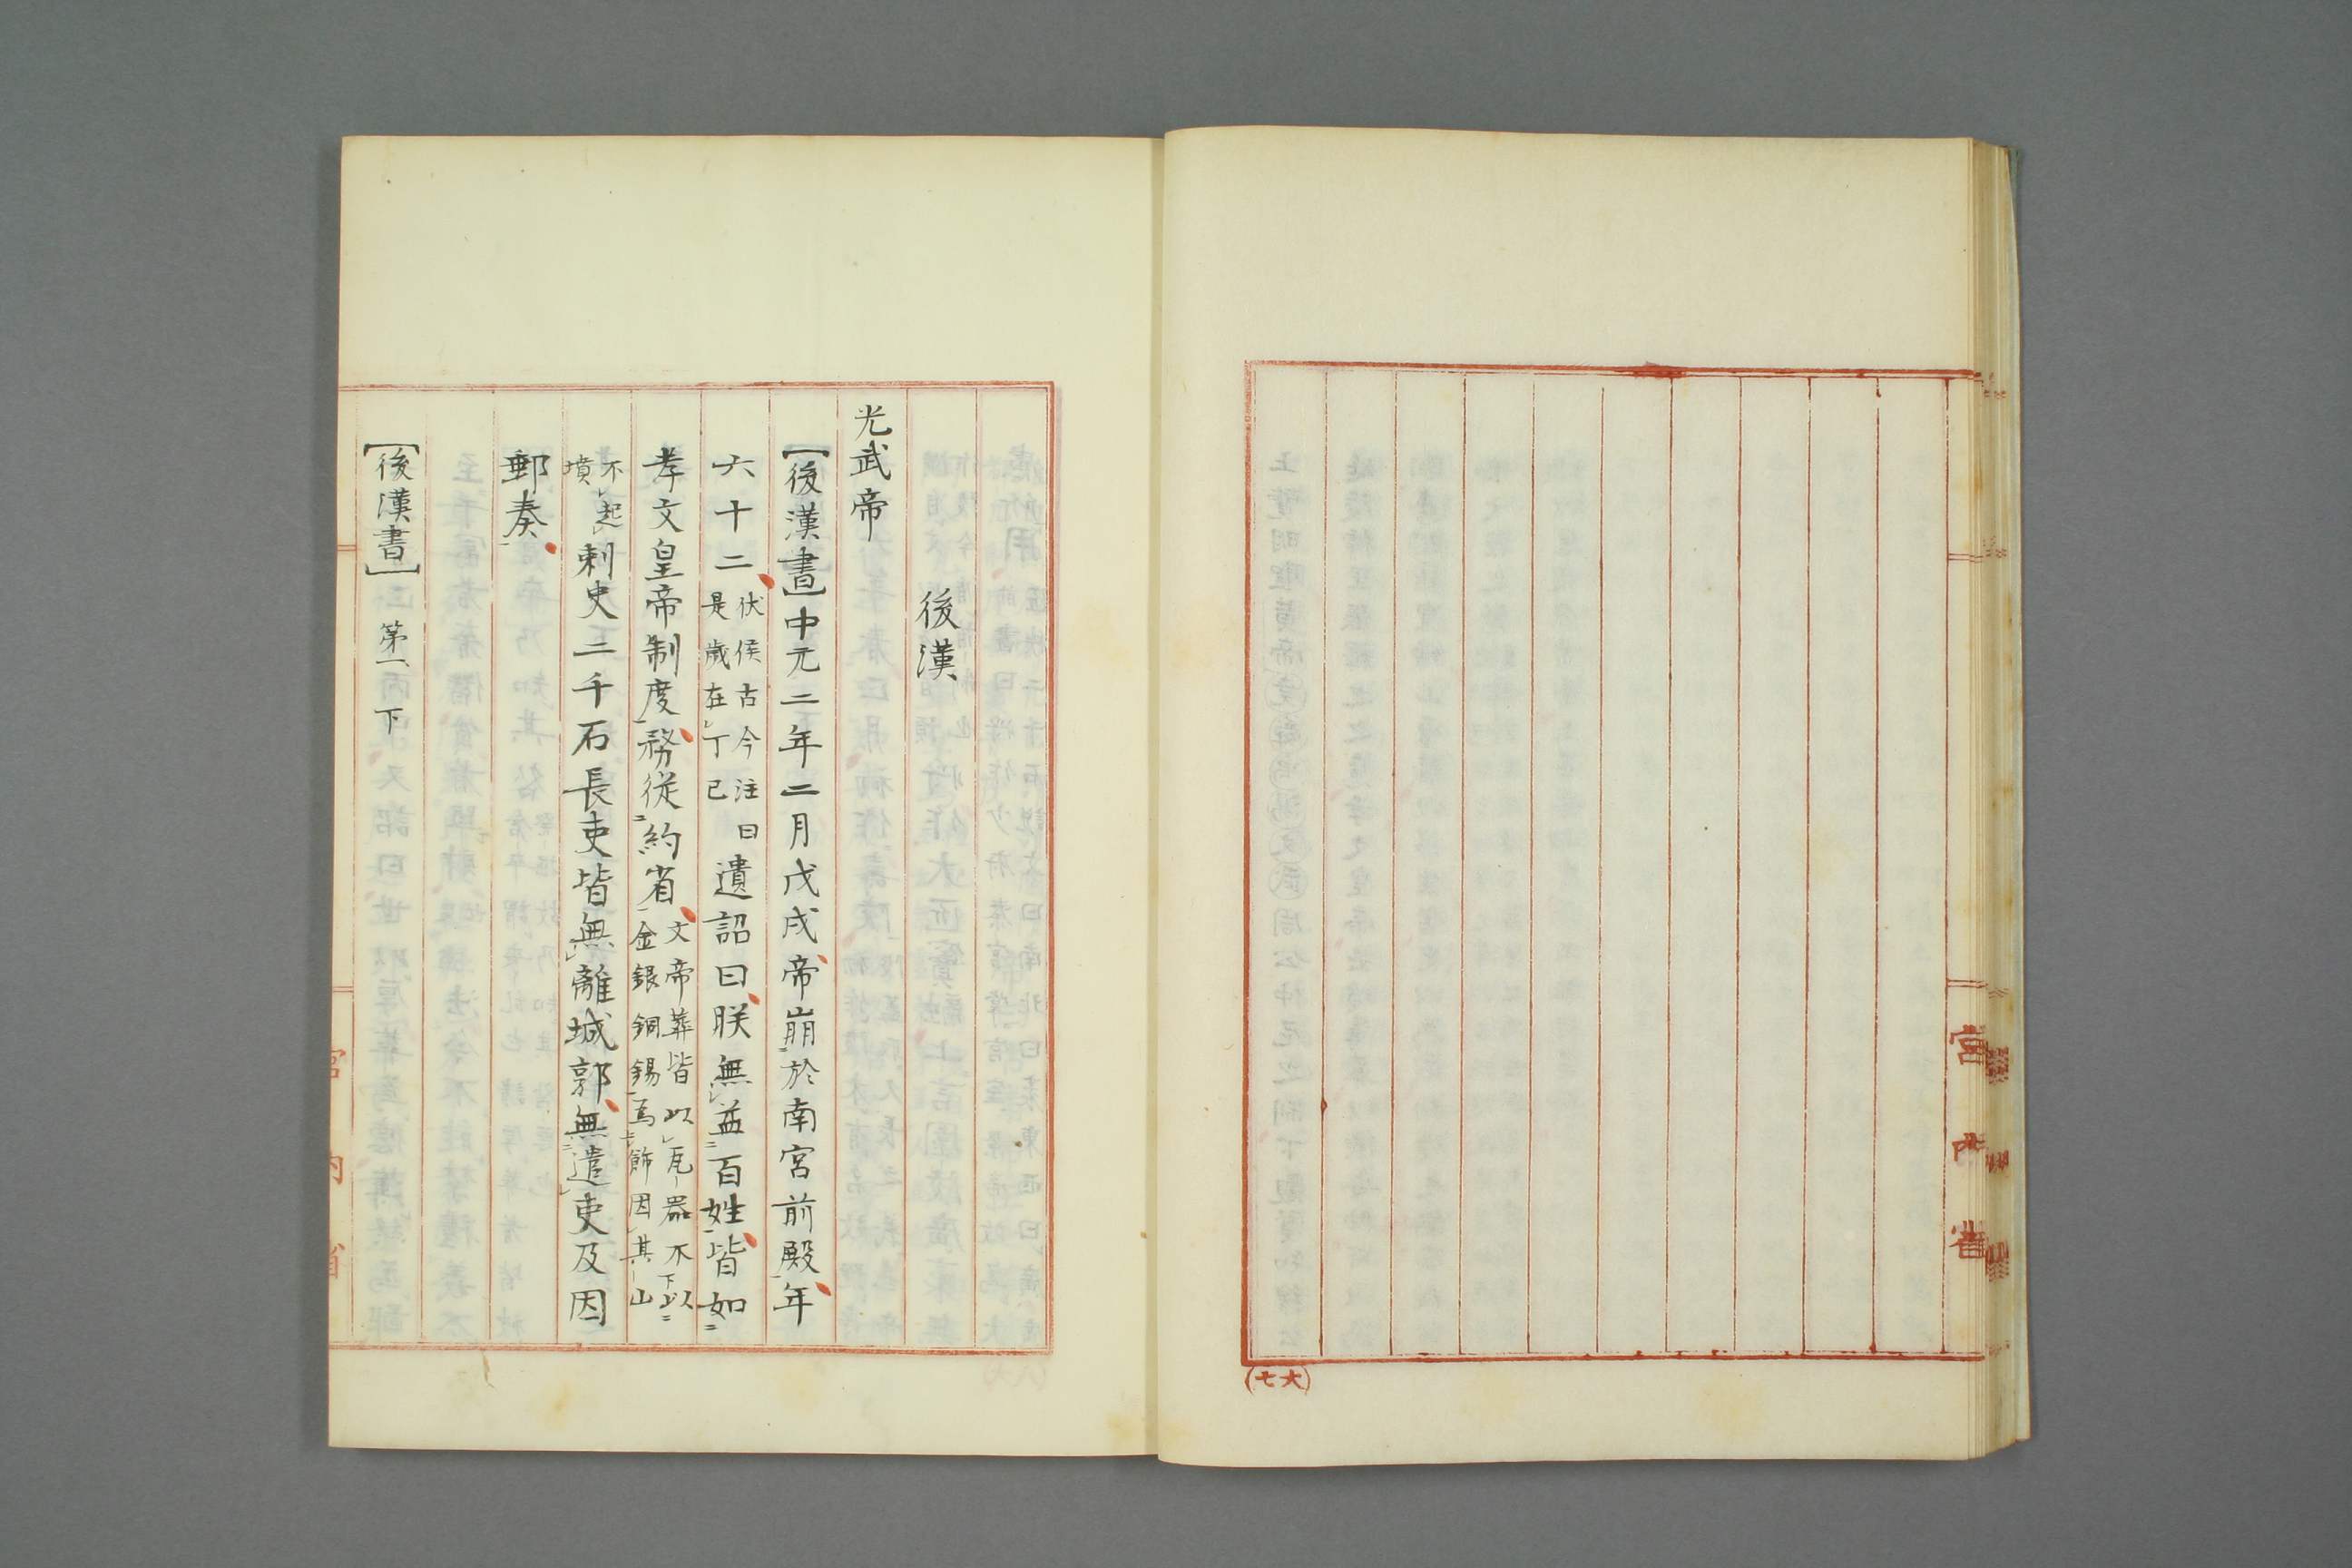 宮内省
(七六)
後漢
光武帝
【後漢書】中元二年二月戊戌帝崩於南宮前殿年
六十二伏侯古今注曰是歳在丁巳遺詔曰朕無益百姓皆如
孝文皇帝制度務従約省文帝葬皆以瓦器不以金銀銅錫為飾因其山
不起墳刺史二千石長吏皆無離城郭無遣吏及因
郵奏
【後漢書】第一下
宮内省